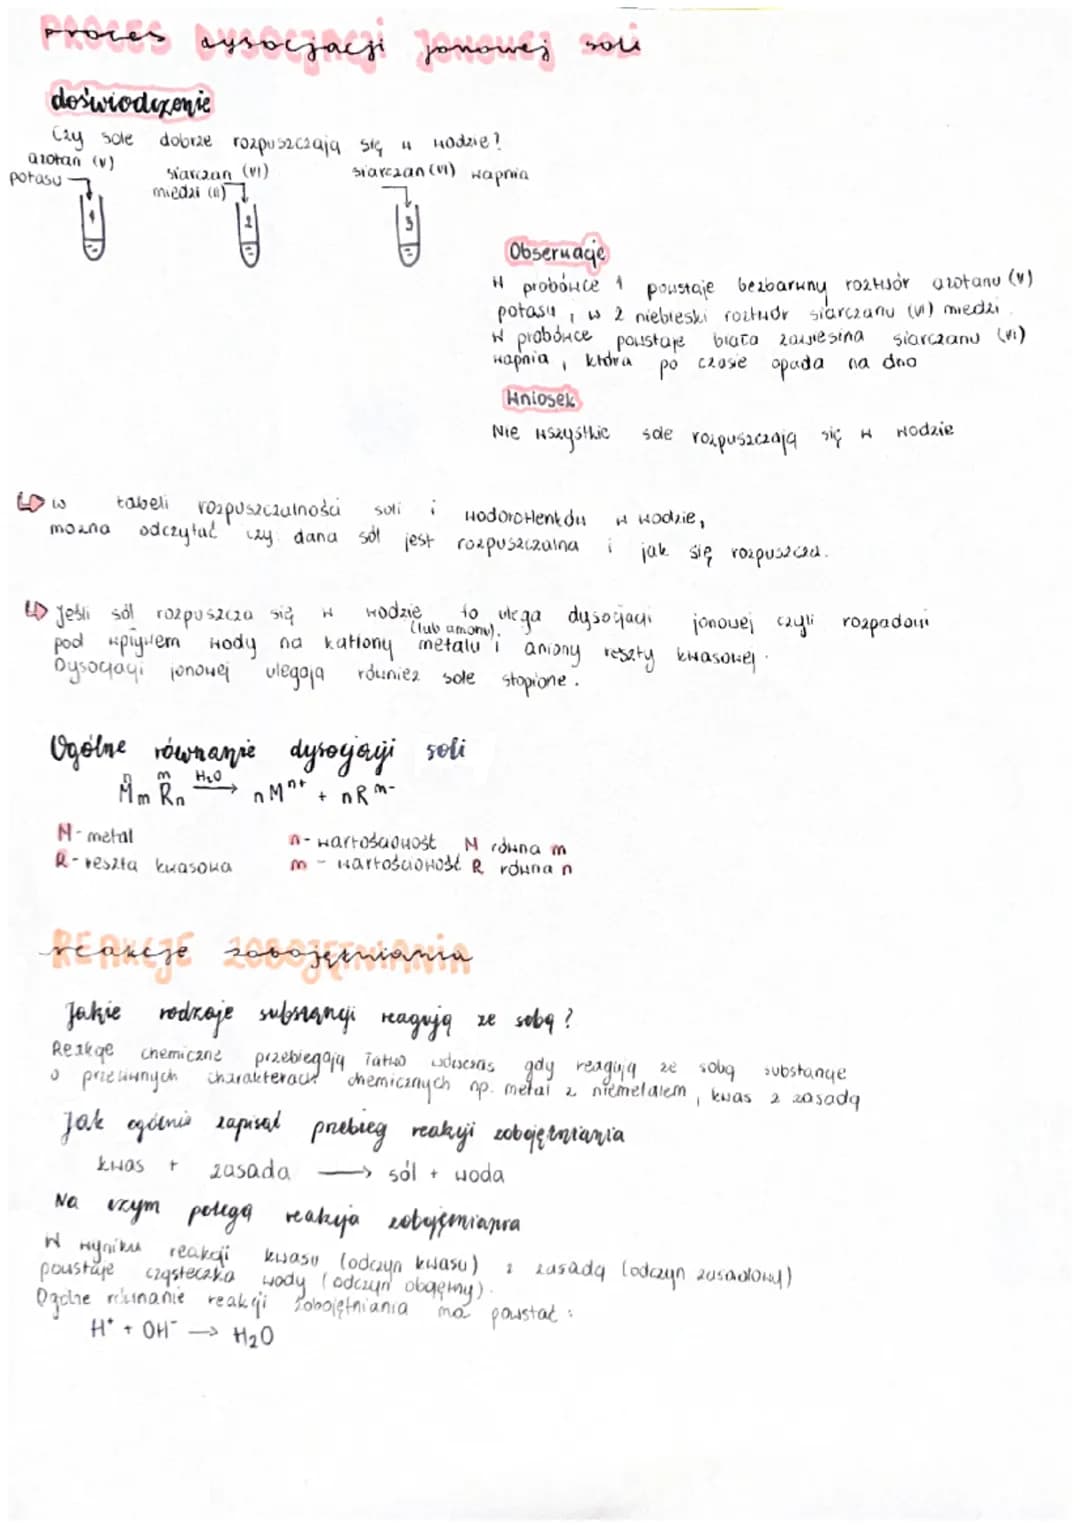 proces dysocjacji jonowej soli
doświadczenie
Czy sole dobrze rozpuszczają się w wodzie?
azotan (V)
potasu
siarczan (VI)
miedzi (II)
siarczan (VI) wapnia
1
2
3
Obserwacje
W probówce 1 powstaje bezbarwny roztwór azotanu (V)
potasu, w 2 niebieski roztwór siarczanu (VI) miedzi.
W probówce powstaje biała zawiesina siarczanu (VI)
wapnia, która po czasie opada na dno
Wniosek
Nie wszystkie sole rozpuszczają się w wodzie
w tabeli rozpuszczalności soli i wodorotlenków w wodzie,
można odczytać czy dana sól jest rozpuszczalna i jak się rozpuszcza.
Jeśli sól rozpuszcza się w wodzie to ulega dysocjacji jonowej czyli rozpadowi
(lub amonu).
pod wpływem wody na kationy metalu i aniony reszty kwasowej.
Dysocjacji jonowej ulegają również sole stopione.
Ogólne równanie dysocjacji soli
n m H₂O
MmRn → nMⁿ⁺ + nRᵐ⁻
M - metal
R - reszta kwasowa
n - wartościowość M równa m
m - wartościowość R równa n
reakcje zobojętniania
Jakie rodzaje substancji reagują ze sobą?
Reakcje chemiczne przebiegają łatwo wówczas gdy reagują ze sobą substancje
o przeciwnych charakterach chemicznych np. metal z niemetalem, kwas z zasadą
Jak ogólnie zapisać przebieg reakcji zobojętniania
kwas + zasada → sól + woda
Na czym polega reakcja zobojętniania
W wyniku reakcji kwasu (odczyn kwasu) z zasadą (odczyn zasadowy)
powstaje cząsteczka wody (odczyn obojętny).
Ogólne równanie reakcji zobojętniania ma postać:
H⁺ + OH⁻ → H₂O